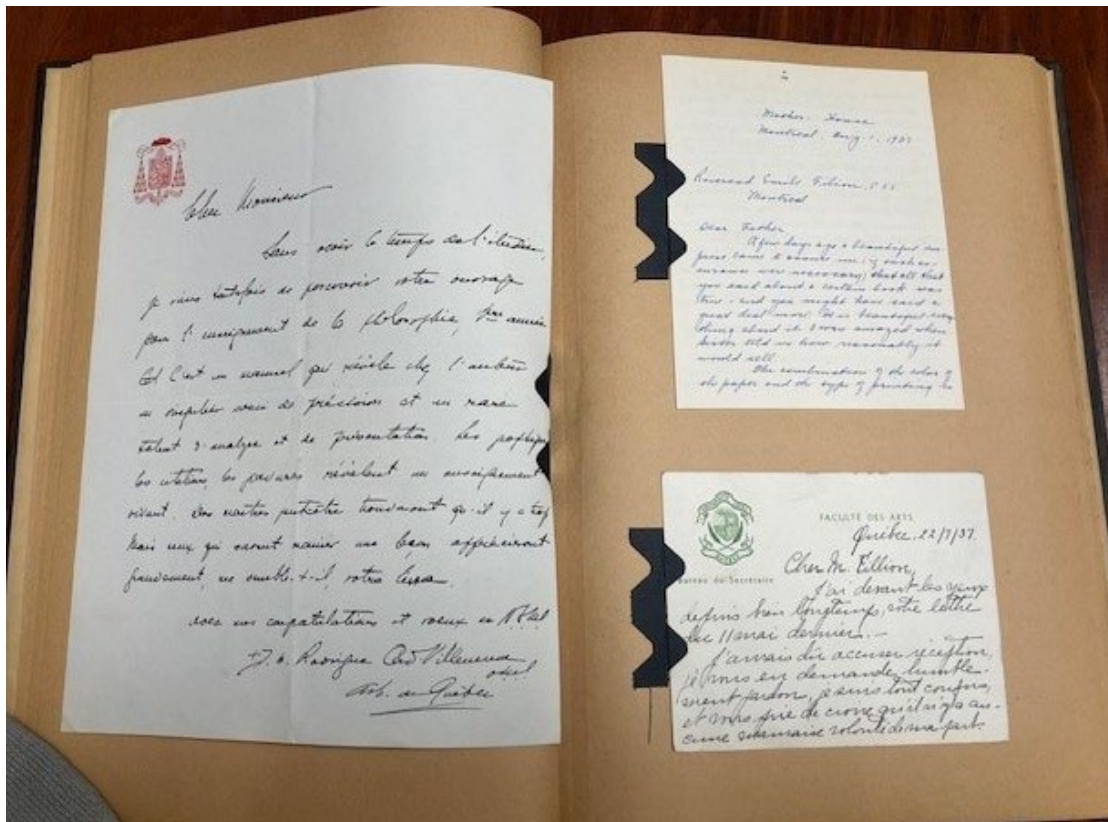 Cher Monsieur
Sans avoir le temps de l'étudier,
je viens toutefois de parcourir votre ouvrage
pour l'enseignement de la philosophie, 1ère année
C'est un manuel qui révèle chez l'auteur
un singulier souci de précision et un rare
talent d'analyse et de présentation. Les
les citations, les gravures révèlent un enseignement
vivant. Des maîtres peut-être trouveront qu'il y a trop
Mais ceux qui savent manier une leçon apprécieront
grandement, me semble-t-il, votre
avec mes congratulations et voeux en N.S. et
J. M. Rodrigue Card Villeneuve
omi
Arch. de Québec
Mother House
Montreal, Aug. 1, 1937
Reverend Emile Filion, P.S.S.
Montreal
Dear Father
A few days ago a beautiful
came to assure me (if such as-
surance were necessary) that all that
you said about a certain book was
true - and you might have said a
great deal more. It is beautiful every
thing about it. I was amazed when
Sister told us how reasonably it
would sell.
The combination of the color of
the paper and the type of printing is
FACULTÉ DES ARTS
Québec, 22/7/37.
Bureau du Secrétaire
Cher M. Fillion,
J'ai devant les yeux
depuis bien longtemps, votre lettre
du 11 mai dernier. —
J'aurais dû accuser réception,
je vous en demande humble-
ment pardon, je suis tout confus,
et vous prie de croire qu'il n'y a au-
cune mauvaise volonté de ma part.